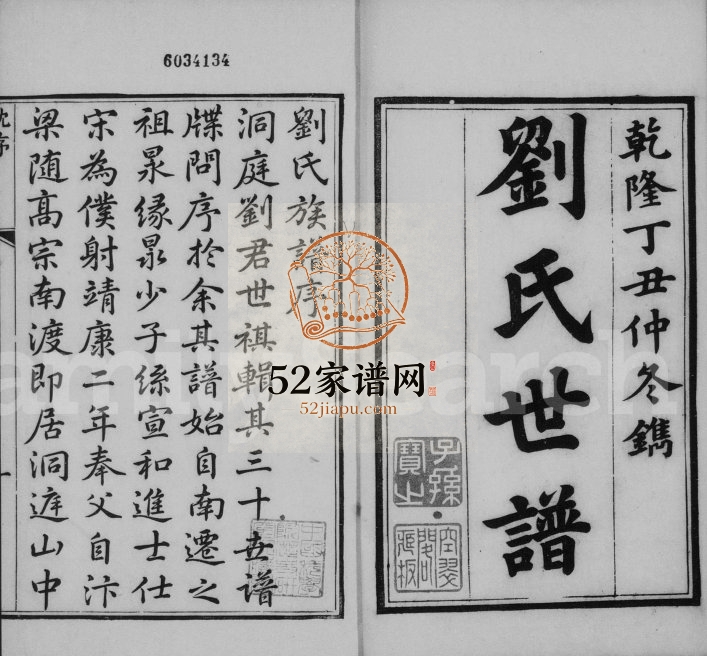 6034134
乾隆丁丑仲冬鐫
劉氏世譜
子孫寶之
空翠閣藏板
劉氏族譜序
洞庭劉君世祺輯其三十世譜
牒問序於余其譜始自南遷之
祖泉緣泉少子絲宣和進士仕
宋為僕射靖康二年奉父自汴
梁随高宗南渡即居洞庭山中
沈序
一
52家谱网
52jiapu.com